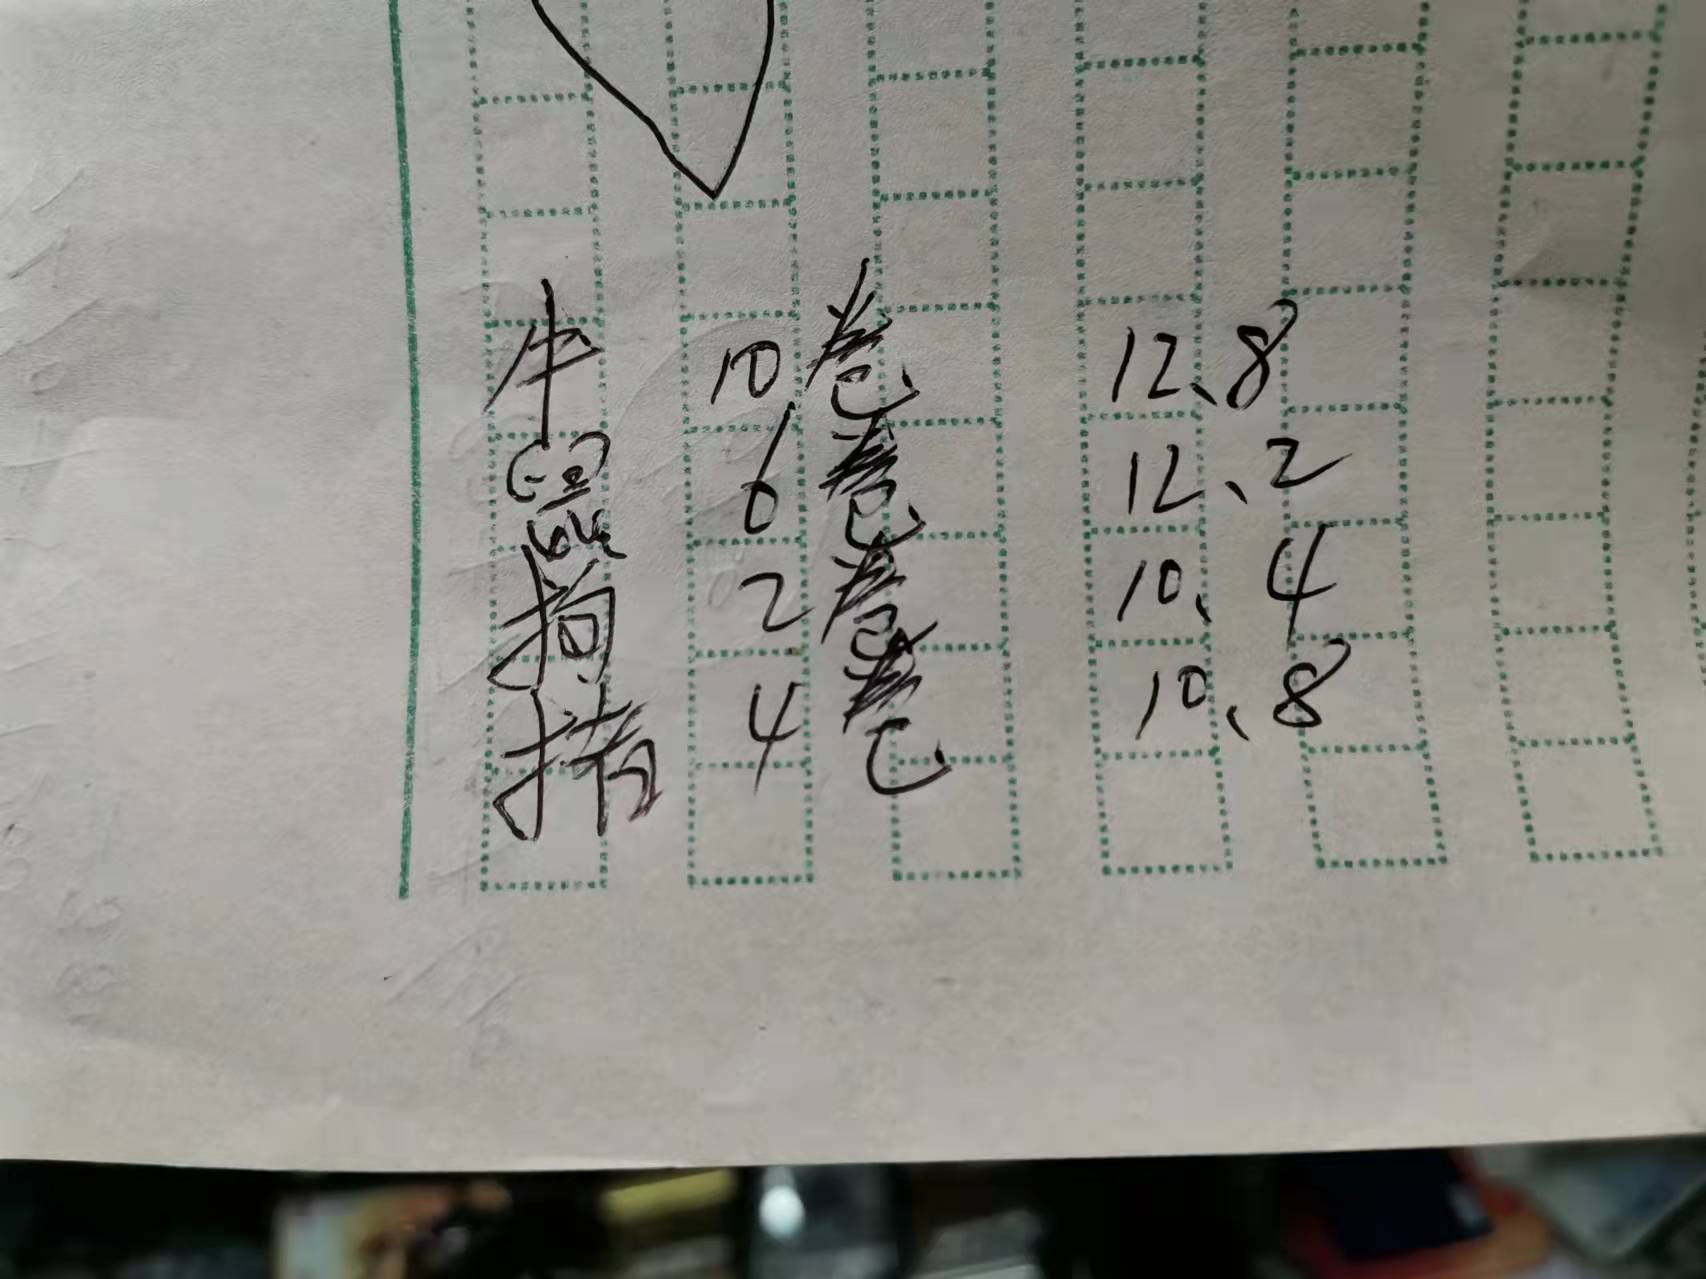 牛 10卷 12、8
鼠 6卷 12、2
狗 2卷 10、4
猪 4卷 10、8